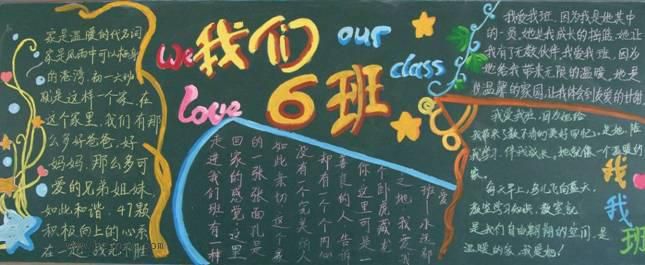 家是温暖的代名词
家是风雨中可以栖身
的港湾,初一六班
就是这样一个家,在
这个家里,我们有那
么多好爸爸,好
妈妈,那么多可
爱的兄弟姐妹
如此和谐,47颗
积极向上的心系
在一起,战无不胜
We 我们 our class
Love 6班
爱
班一水泥都
之地,我爱我
个卧虎藏龙
你这里可是一
善良的人告诉
却有一个个内心
没有一个完美的人
如此亲切,这个家
的一张张面孔是
回家的感觉这里
走进我们班有一种
我爱我班,因为我是她其中
的一员,她是我成长的摇篮,她让
我有了无数伙伴,我爱我班,因为
她给我带来无限的温暖,她是
温馨的家园,让我体会到友爱的甘甜
我爱我班,因为她给
我带来数不清的美好回忆,是她陪
我学习,伴我成长,她就像一个温暖的
家。
每天早上,鸟儿飞向蓝天,
是我们自由翱翔的空间,是
温暖的家,我是她!
我爱我班